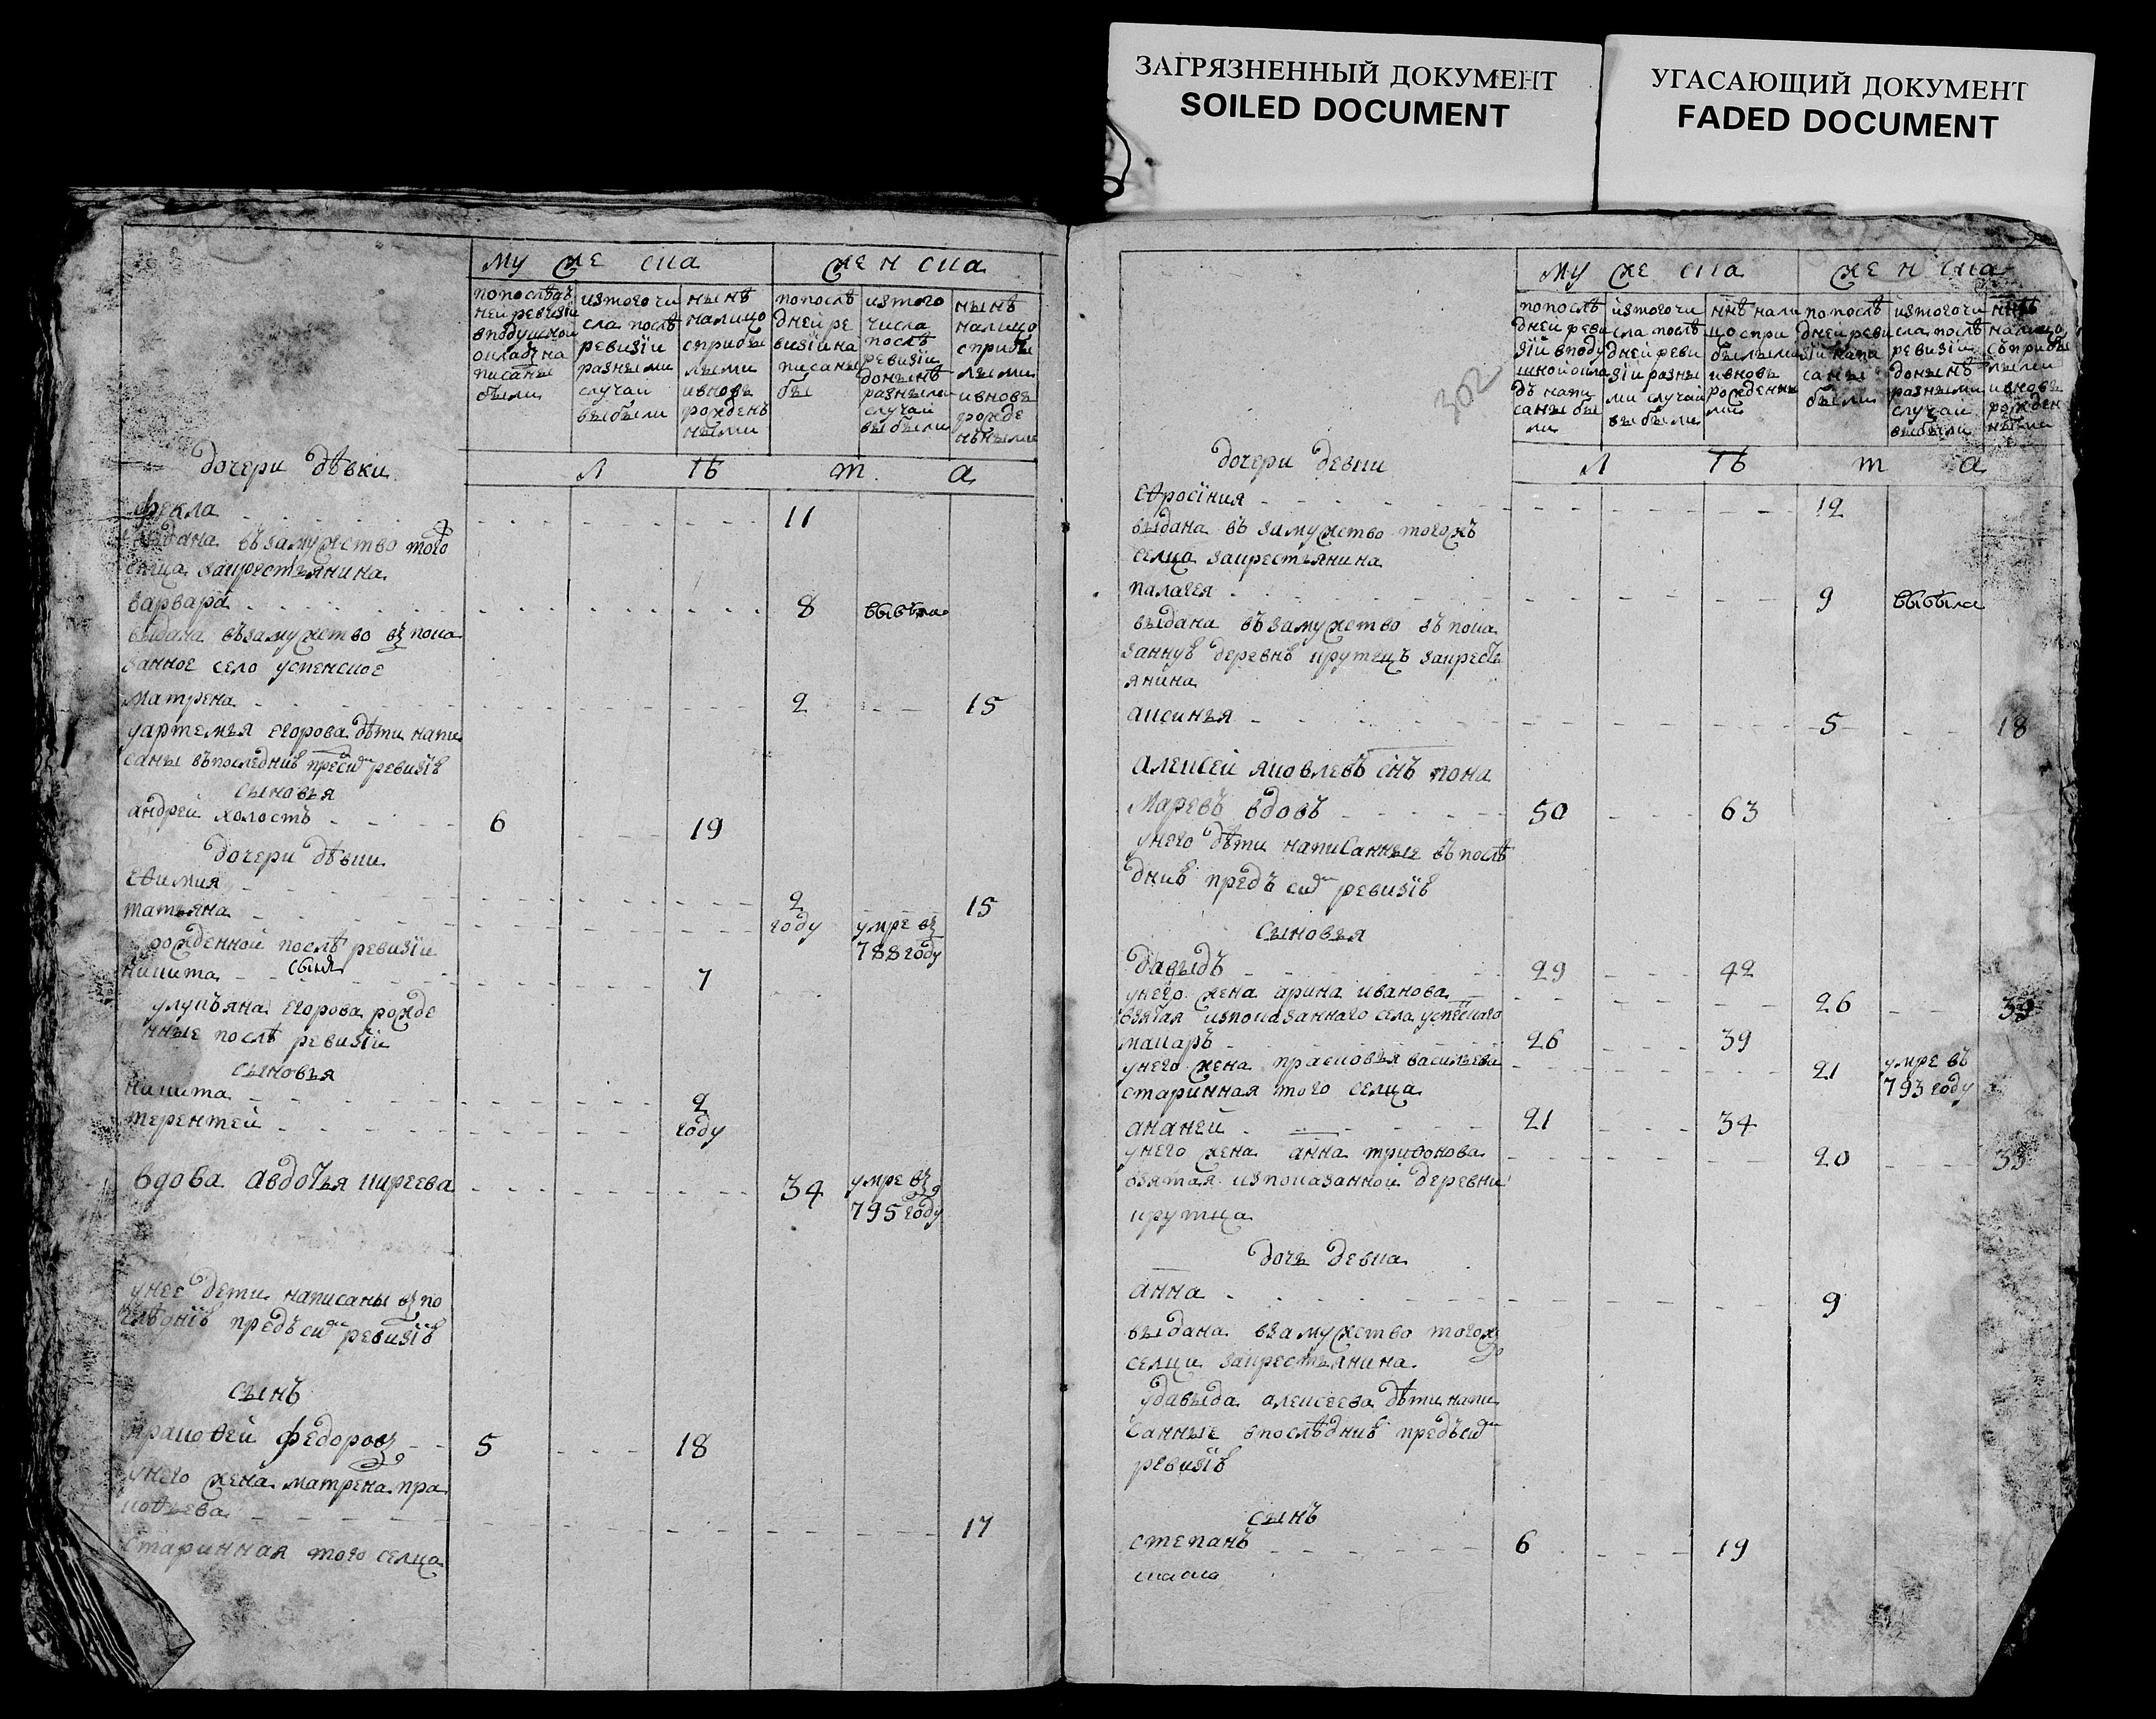 ЗАГРЯЗНЕННЫЙ ДОКУМЕНТ
SOILED DOCUMENT
УГАСАЮЩИЙ ДОКУМЕНТ
FADED DOCUMENT
му же ска
жен ска
попослѣдъ ней ревизiи вподушной окладъ на писаны были
изтого чи сла послѣ ревизiи разными случаи выбыли
нынѣ налицо сприбы лыми ивновь рожденъ ными
попослѣ дней ре визiи на писаны бы
изтого числа послѣ ревизiи донынѣ разными случаи выбыли
нынѣ налицо сприбы лыми ивновь рожде нными
л ѣ т а
дочери дѣвки
фекла 11
выдана въ замужство того
селца закрестьянина
варвара 8 выбыла
выдана въ замужство въ пока
занное село успенское
матрена 2 15
уартемья егорова дѣти напи
саны въ последнiѣ предъ сиди ревизiѣ
сыновья
андрей холостъ 6 19
дочери дѣвки
еѳимия 2 15
татьяна году умре въ 788 году
рожденной послѣ ревизiи
никита сынъ 7
улукъяна егорова рожде
нные послѣ ревизiи
сыновья
никита 2
терентей году
вдова авдотья киреева 34 умре въ 795 году
унее дети написаны въ по
слѣднiѣ предъ сиди ревизiѣ
сынъ
пракоѳей федоровъ 5 18
унего жена матрена пра
коѳьева 17
старинная того селца
302
му же ска
жен ска
попослѣ дней реви зiй вподу шной окла дъ напи саны бы ли
изтого чи сла послѣ дней реви зiи разны ми случаи выбыли
ннѣ нали цо спри былыми ивновь рожденны ми
попослѣ дней реви зiй напи саны были
изтого чи сла послѣ ревизiи донынѣ разными случаи выбыли
ннѣ налицо сприбы лыми ивновь рожден ными
л ѣ т а
дочери девки
еѳросiния 12
выдана въ замужство тогожъ
селца закрестьянина
палагея 9 выбыла
выдана въ замужство въ пока
заннуѣ деревнѣ крутецъ закресть
янина
аксинья 5 18
алексей яковлевъ снъ пона
маревъ вдовъ 50 63
унего дѣти написанные въ послѣ
днiѣ предъ сиди ревизiѣ
сыновья
давыдъ 29 42
унего жена арина иванова 26 39
взятая изпоказанного села успенского
макаръ 26 39
унего жена прасковья васильева 21 умре въ 793 году
старинная того селца
ананей 21 34
унего жена анна триѳонова 20 33
взятая изпоказанной деревни
крутца
дочь девка
анна 9
выдана взамужство тогожъ
селца закрестьянина
удавыда алексеева дѣти напи
санные впослѣднiѣ предъ сиди
ревизiѣ
сынъ
степанъ 6 19